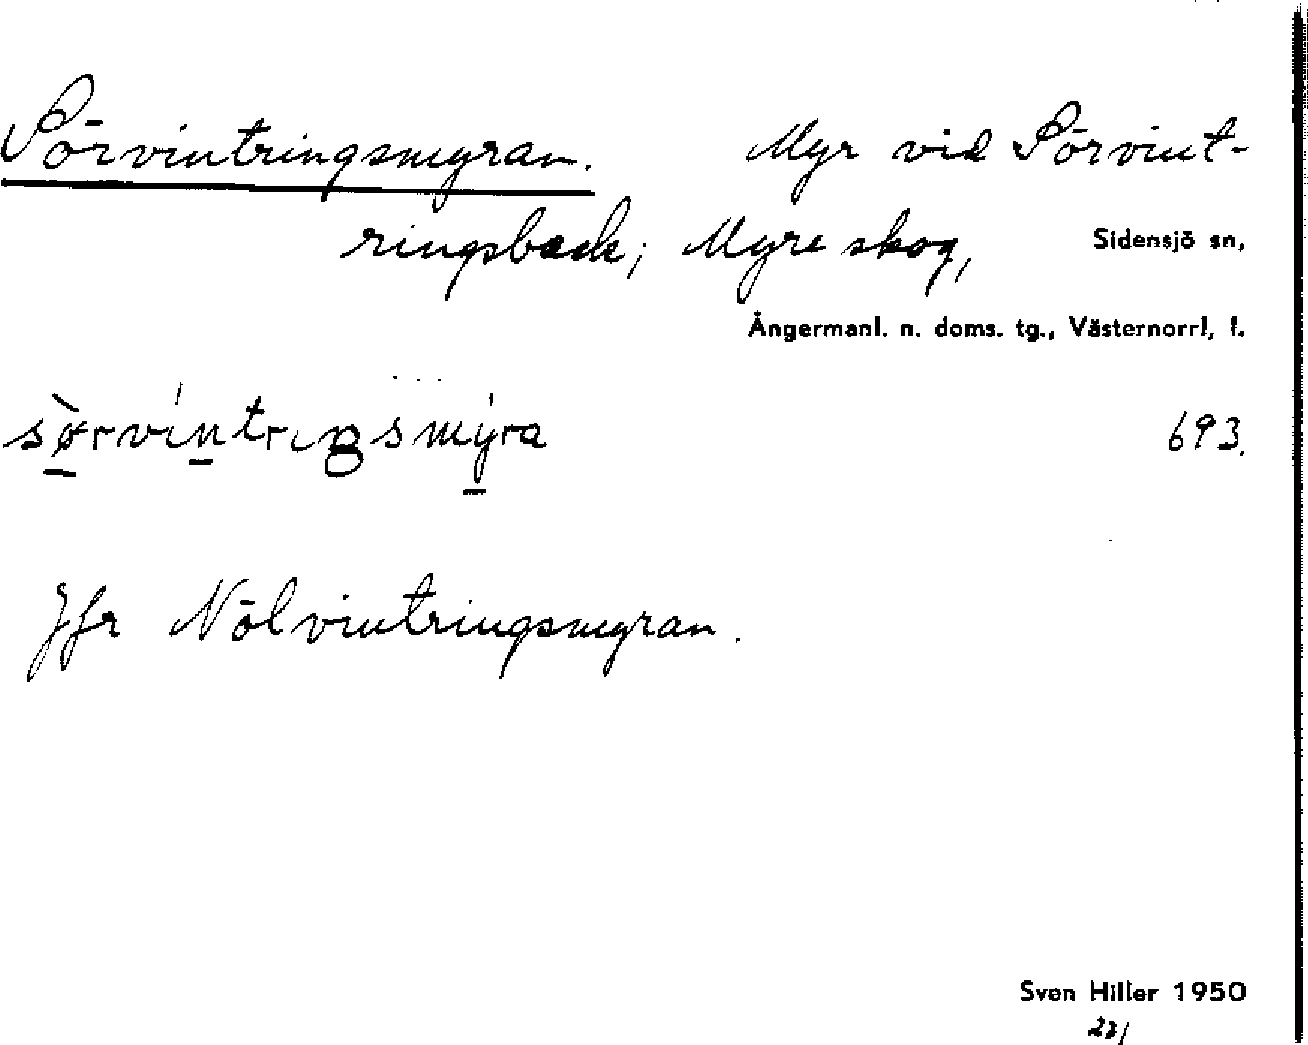 Sörvintringsmyran. Myr vid Sörvint-
ringsbäck; Myre skog, Sidensjö sn,
Ångermanl. n. doms. tg., Västernorrl. l.
sørvintrıŋsmýra 693.
Jfr Nölvintringsmyran.
Sven Hiller 1950